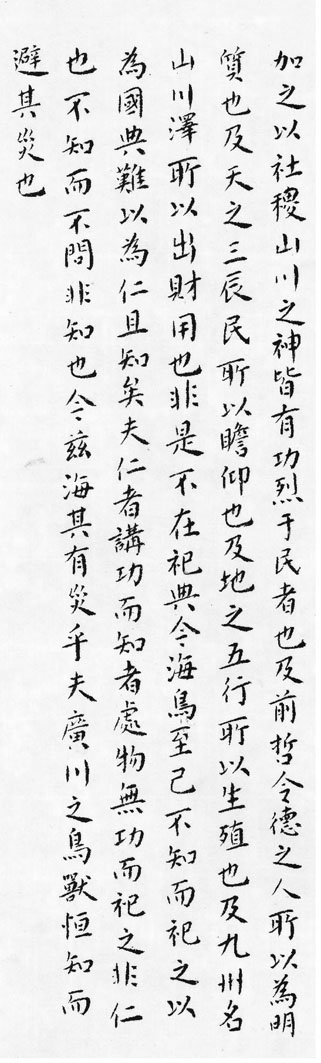 加之以社稷山川之神皆有功烈于民者也及前哲令德之人所以為明
質也及天之三辰民所以瞻仰也及地之五行所以生殖也及九州名
山川澤所以出財用也非是不在祀典今海鳥至己不知而祀之以
為國典難以為仁且知矣夫仁者講功而知者處物無功而祀之非仁
也不知而不問非知也今茲海其有災乎夫廣川之鳥獸恒知而
避其災也